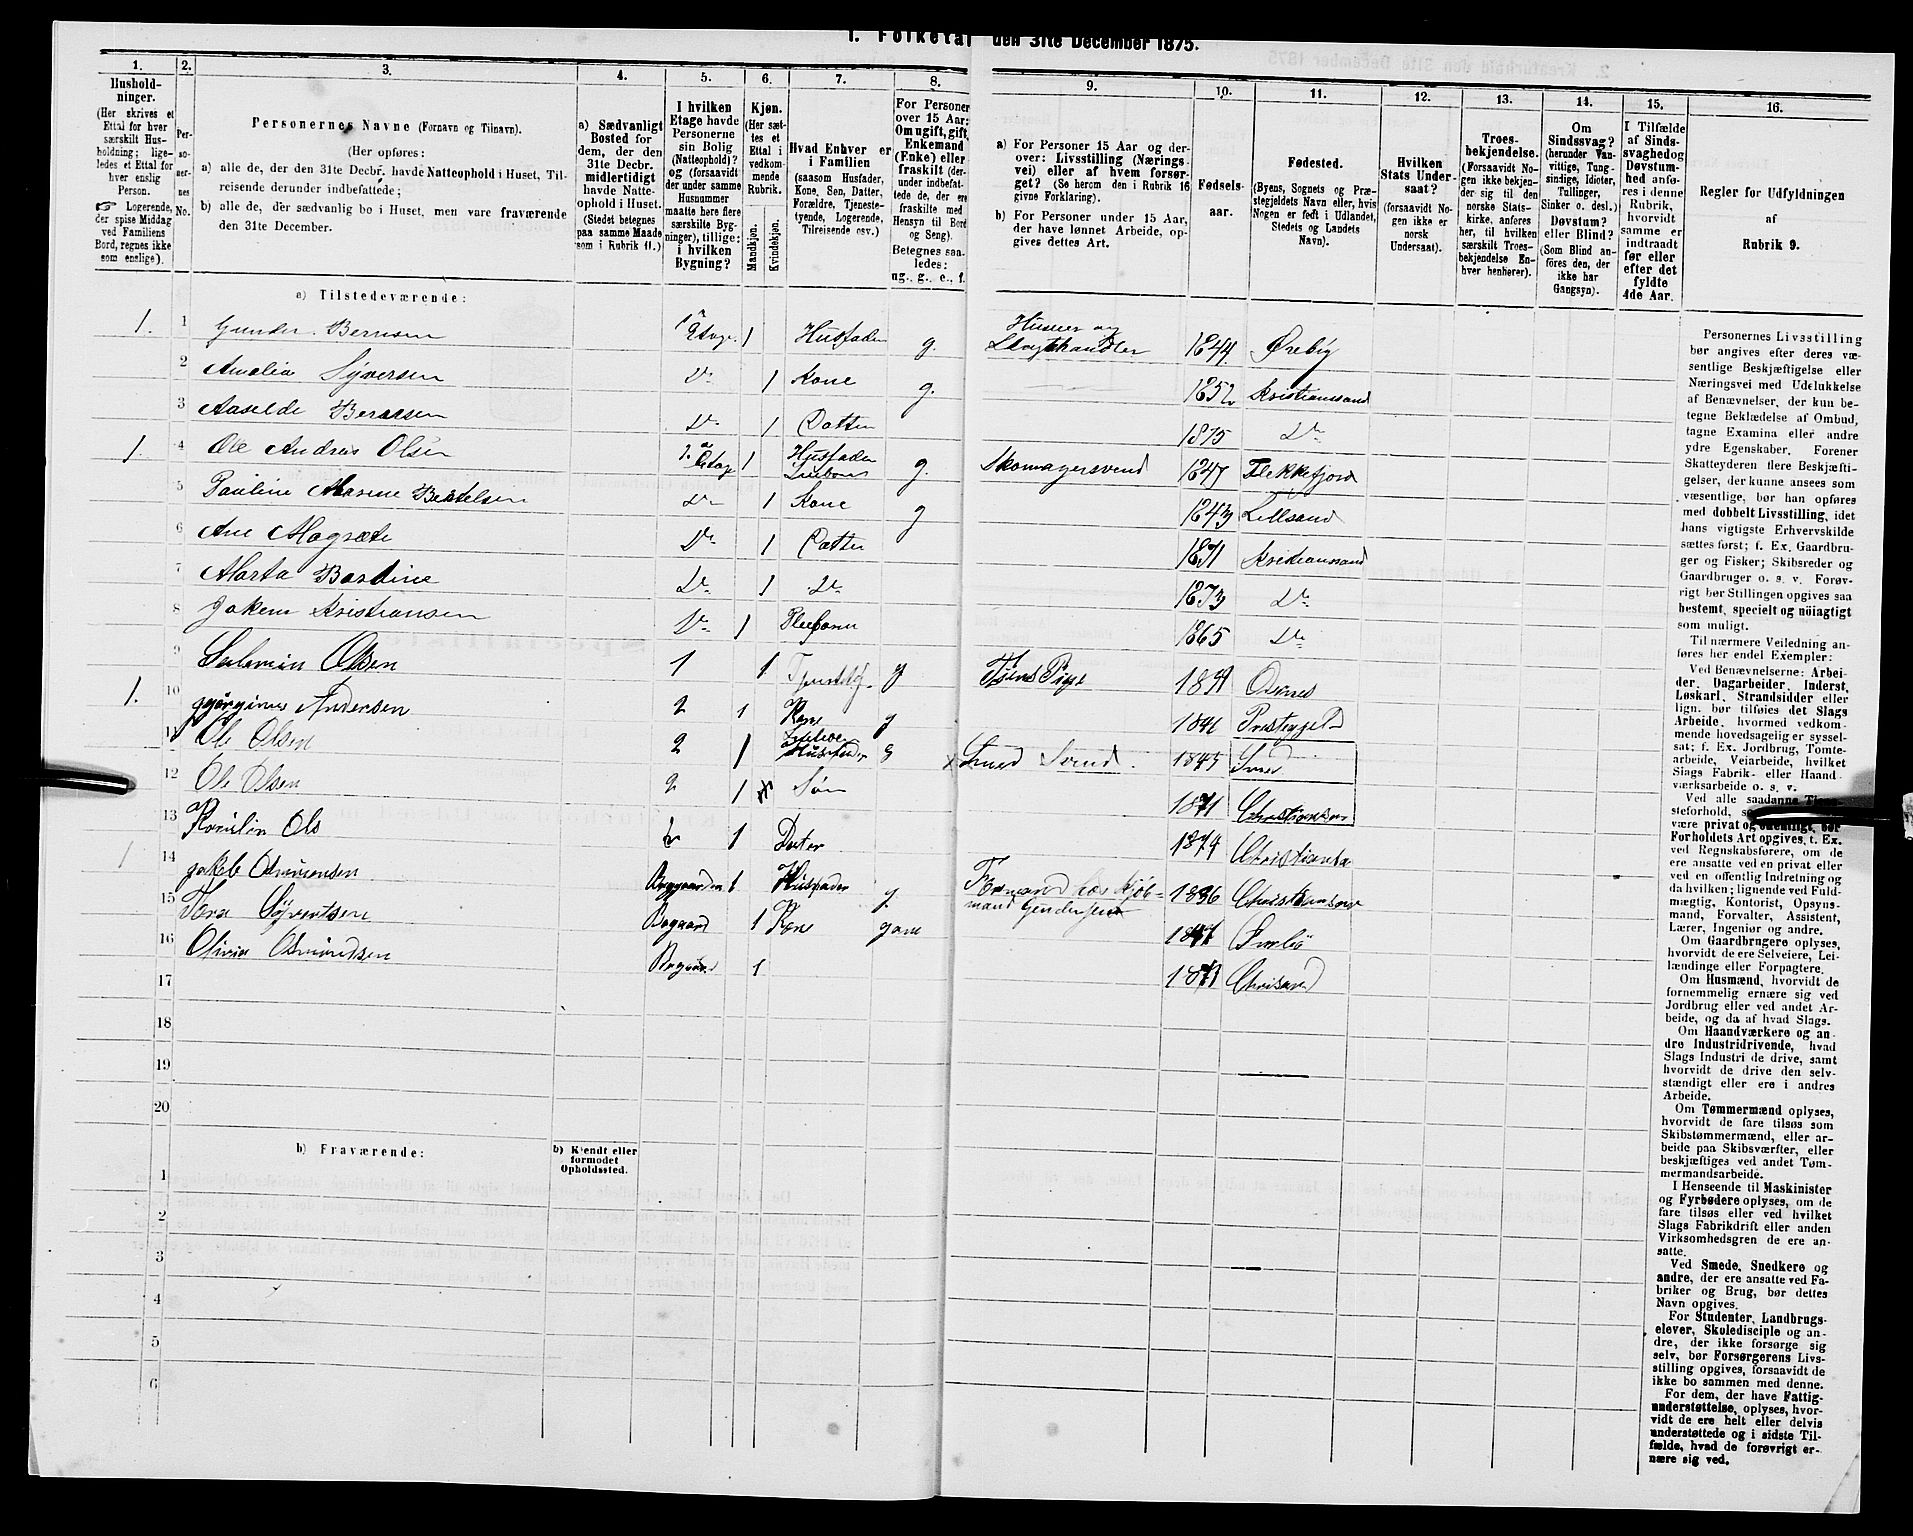 I. Folketal den 31te December 1875.
1.
Hushold-
ninger.
(Her skrives et
Ettal for hver
særskilt Hus-
holdning; lige-
ledes et Ettal for
hver enslig
Person.
Logerende,
der spise Middag
ved Familiens
Bord, regnes ikke
som enslige).
2.
Per-
so-
ner-
nes
No.
3.
Personernes Navne (Fornavn og Tilnavn).
(Her opføres:
a) alle de, der den 31te Decbr. havde Natteophold i Huset, Til-
reisende derunder indbefattede;
b) alle de, der sædvanlig bo i Huset, men vare fraværende
den 31te December.
4.
a) Sædvanligt
Bosted for
dem, der den
31te Decbr.
midlertidigt
havde Natte-
ophold i Huset.
(Stedet betegnes
paa samme Maade
som i Rubrik 11.)
5.
I hvilken
Etage havde
Personerne
sin Bolig
(Natteophold)?
og (forsaavidt
der under samme
Husnummer
maatte høre flere
særskilte Byg-
ninger), tillige:
i hvilken
Bygning?
6.
Kjøn.
(Her sæt-
tes et
Ettal i
vedkom-
mende
Rubrik.
Mandkjøn.
Kvindekjøn.
7.
Hvad Enhver er
i Familien
(saasom Husfader,
Kone, Søn, Datter,
Forældre, Tjeneste-
tyende, Logerende,
Tilreisende osv.)
8.
For Personer
over 15 Aar:
Om ugift, gift,
Enkemand
(Enke) eller
fraskilt (der-
under indbefat-
tede de, der ere
fraskilte med
Hensyn til Bord
og Seng).
Betegnes saa-
ledes:
ug., g., e., f.
9.
a) For Personer 15 Aar og der-
over: Livsstilling (Nærings-
vei) eller af hvem forsør-
get? (Se herom den i Rubrik 16
givne Forklaring).
b) For Personer under 15 Aar,
der have lønnet Arbeide, op-
gives dettes Art.
10.
Fødsels-
aar.
11.
Fødested.
(Byens, Sognets og Præ-
stegjeldets Navn eller, hvis
Nogen er født i Udlandet,
Stedets og Landets
Navn).
12.
Hvilken
Stats Under-
saat?
(forsaavidt No-
gen ikke er
norsk
Undersaat).
13.
Troes-
bekjendelse.
(Forsaavidt No-
gen ikke bekjen-
der sig til den
norske Stats-
kirke, anføres
her, til hvilken
særskilt Troes-
bekjendelse En-
hver henhører).
14.
Om
Sindssvag?
(herunder Van-
vittige, Tung-
sindige, Idioter,
Tullinger,
Sinker o. desl.)
Døvstum?
eller Blind?
(Som Blind an-
føres den, der
ikke har
Gangsyn).
15.
I Tilfælde
af Sinds-
svaghed og
Døvstum-
hed anfø-
res i denne
Rubrik,
hvorvidt
samme er
indtraadt
før eller
efter det
fyldte
4de Aar.
16.
Regler for Udfyldningen
af
Rubrik 9.
a) Tilstedeværende:
1. 1 Gunder Bernsen 1ste Etage. 1 Husfader g. Huseier og Skogshandler 1844 Ørebig
2 Amalia Syversen Do 1 Kone g. 1852 Kristianssand
3 Aaselde Bernsen Do 1 Datter 1875 Do
1. 4 Ole Andras Olsen Etage 1 Husfader g. Skomagersvend 1847 Flekkefjord
5 Pauline Marine Bertelsen Do 1 Kone g 1843 Lillesand
6 Ane Magrete Do 1 Datter 1871 Kristianssand
7 Marta Bardine Do 1 Do 1873 Do
8 Jokem Kristiansen Do 1 Pleiesønn 1865 Do
9 Salemin Olsen 1 1 Tjeneste Tjens Pige Osknes
1. 10 gjørgine Andersen 2 1 Kone g 1841 Prestegjeld
11 Ole Olsen 2 1 Husfader g x Smed Svend. 1845
12 Ole Olsen 2 1 Søn 1871 Christiansan
13 Romilin Ols 1 Dater 1874 Christiansa
1 14 jakob Osmundsen Baggaarden 1 Husfader g. Formand hos Kjøb-
mand Gundersen 1836 Christiansan
15 Tora Syvertsen Bagaard 1 Kone
16 Olivia Osmundsen Bagaar 1 1873 Chrisand
17
18
19
20
b) Fraværende:
b) Kjendt eller
formodet
Opholdssted.
1
2
3
4
5
6
Personernes Livsstilling
bør angives efter deres væ-
sentlige Beskjæftigelse eller
Næringsvei med Udelukkelse
af Benævnelser, der kun be-
tegne Beklædelse af Ombud,
tagne Examina eller andre
ydre Egenskaber. Forener
Skatteyderen flere Beskjæfti-
gelser, der kunne ansees som
væsentlige, bør han opføres
med dobbelt Livsstilling, idet
hans vigtigste Erhvervskilde
sættes først; f. Ex. Gaardbru-
ger og Fisker; Skibsreder og
Gaardbruger o. s. v. Forøv-
rigt bør Stillingen opgives saa
bestemt, specielt og nöiagtigt
som muligt.
Til nærmere Veiledning an-
føres her endel Exempler:
Ved Benævnelserne: Arbei-
der, Dagarbeider, Inderst,
Løskarl, Strandsidder eller
lign. bør tilføies det Slags
Arbeide, hvormed vedkom-
mende hovedsagelig er syssel-
sat; f. Ex. Jordbrug, Tomte-
arbeide, Veiarbeide, hvilket
Slags Fabrik- eller Haand-
værksarbeide o. s. v.
Ved alle saadanne Tjene-
steforhold,
være privat og offentligt, bør
Forholdets Art opgives, t. Ex.
ved Regnskabsførere, om de
ere ansatte ved en privat eller
ved en offentlig Indretning og
da hvilken; lignende ved Fuld-
mægtig, Kontorist, Opsyns-
mand, Forvalter, Assistent,
Lærer, Ingeniør og andre.
Om Gaardbrugere oplyses,
hvorvidt de ere Selveiere, Lei-
lændinge eller Forpagtere.
Om Husmænd, hvorvidt de
fornemmelig ernære sig ved
Jordbrug eller ved andet Ar-
beide, og da af hvad Slags.
Om Haandværkere og an-
dre Industridrivende, hvad
Slags Industri de drive, samt
hvorvidt de drive den selv-
stændigt eller ere i andres
Arbeide.
Om Tømmermænd oplyses,
hvorvidt de fare tilsøs som
Skibstømmermænd, eller ar-
beide paa Skibsværfter, eller
beskjæftiges ved andet Tøm-
mermandsarbeide.
I Henseende til Maskinister
og Fyrbødere oplyses, om de
fare tilsøs eller ved hvilket
Slags Fabrikdrift eller anden
Virksomhedsgren de ere an-
satte.
Ved Smede, Snedkere og
andre, der ere ansatte ved Fa-
briker og Brug, bør dettes
Navn opgives.
For Studenter, Landbrugs-
elever, Skoledisciple og an-
dre, der ikke forsørge sig
selv, bør Forsørgerens Livs-
stilling opgives, forsaavidt de
ikke bo sammen med denne.
For dem, der have Fattig-
understøttelse, oplyses, hvor-
vidt de ere helt eller delvis
understøttede og i sidste Til-
fælde, hvad de forøvrigt er-
nære sig ved.